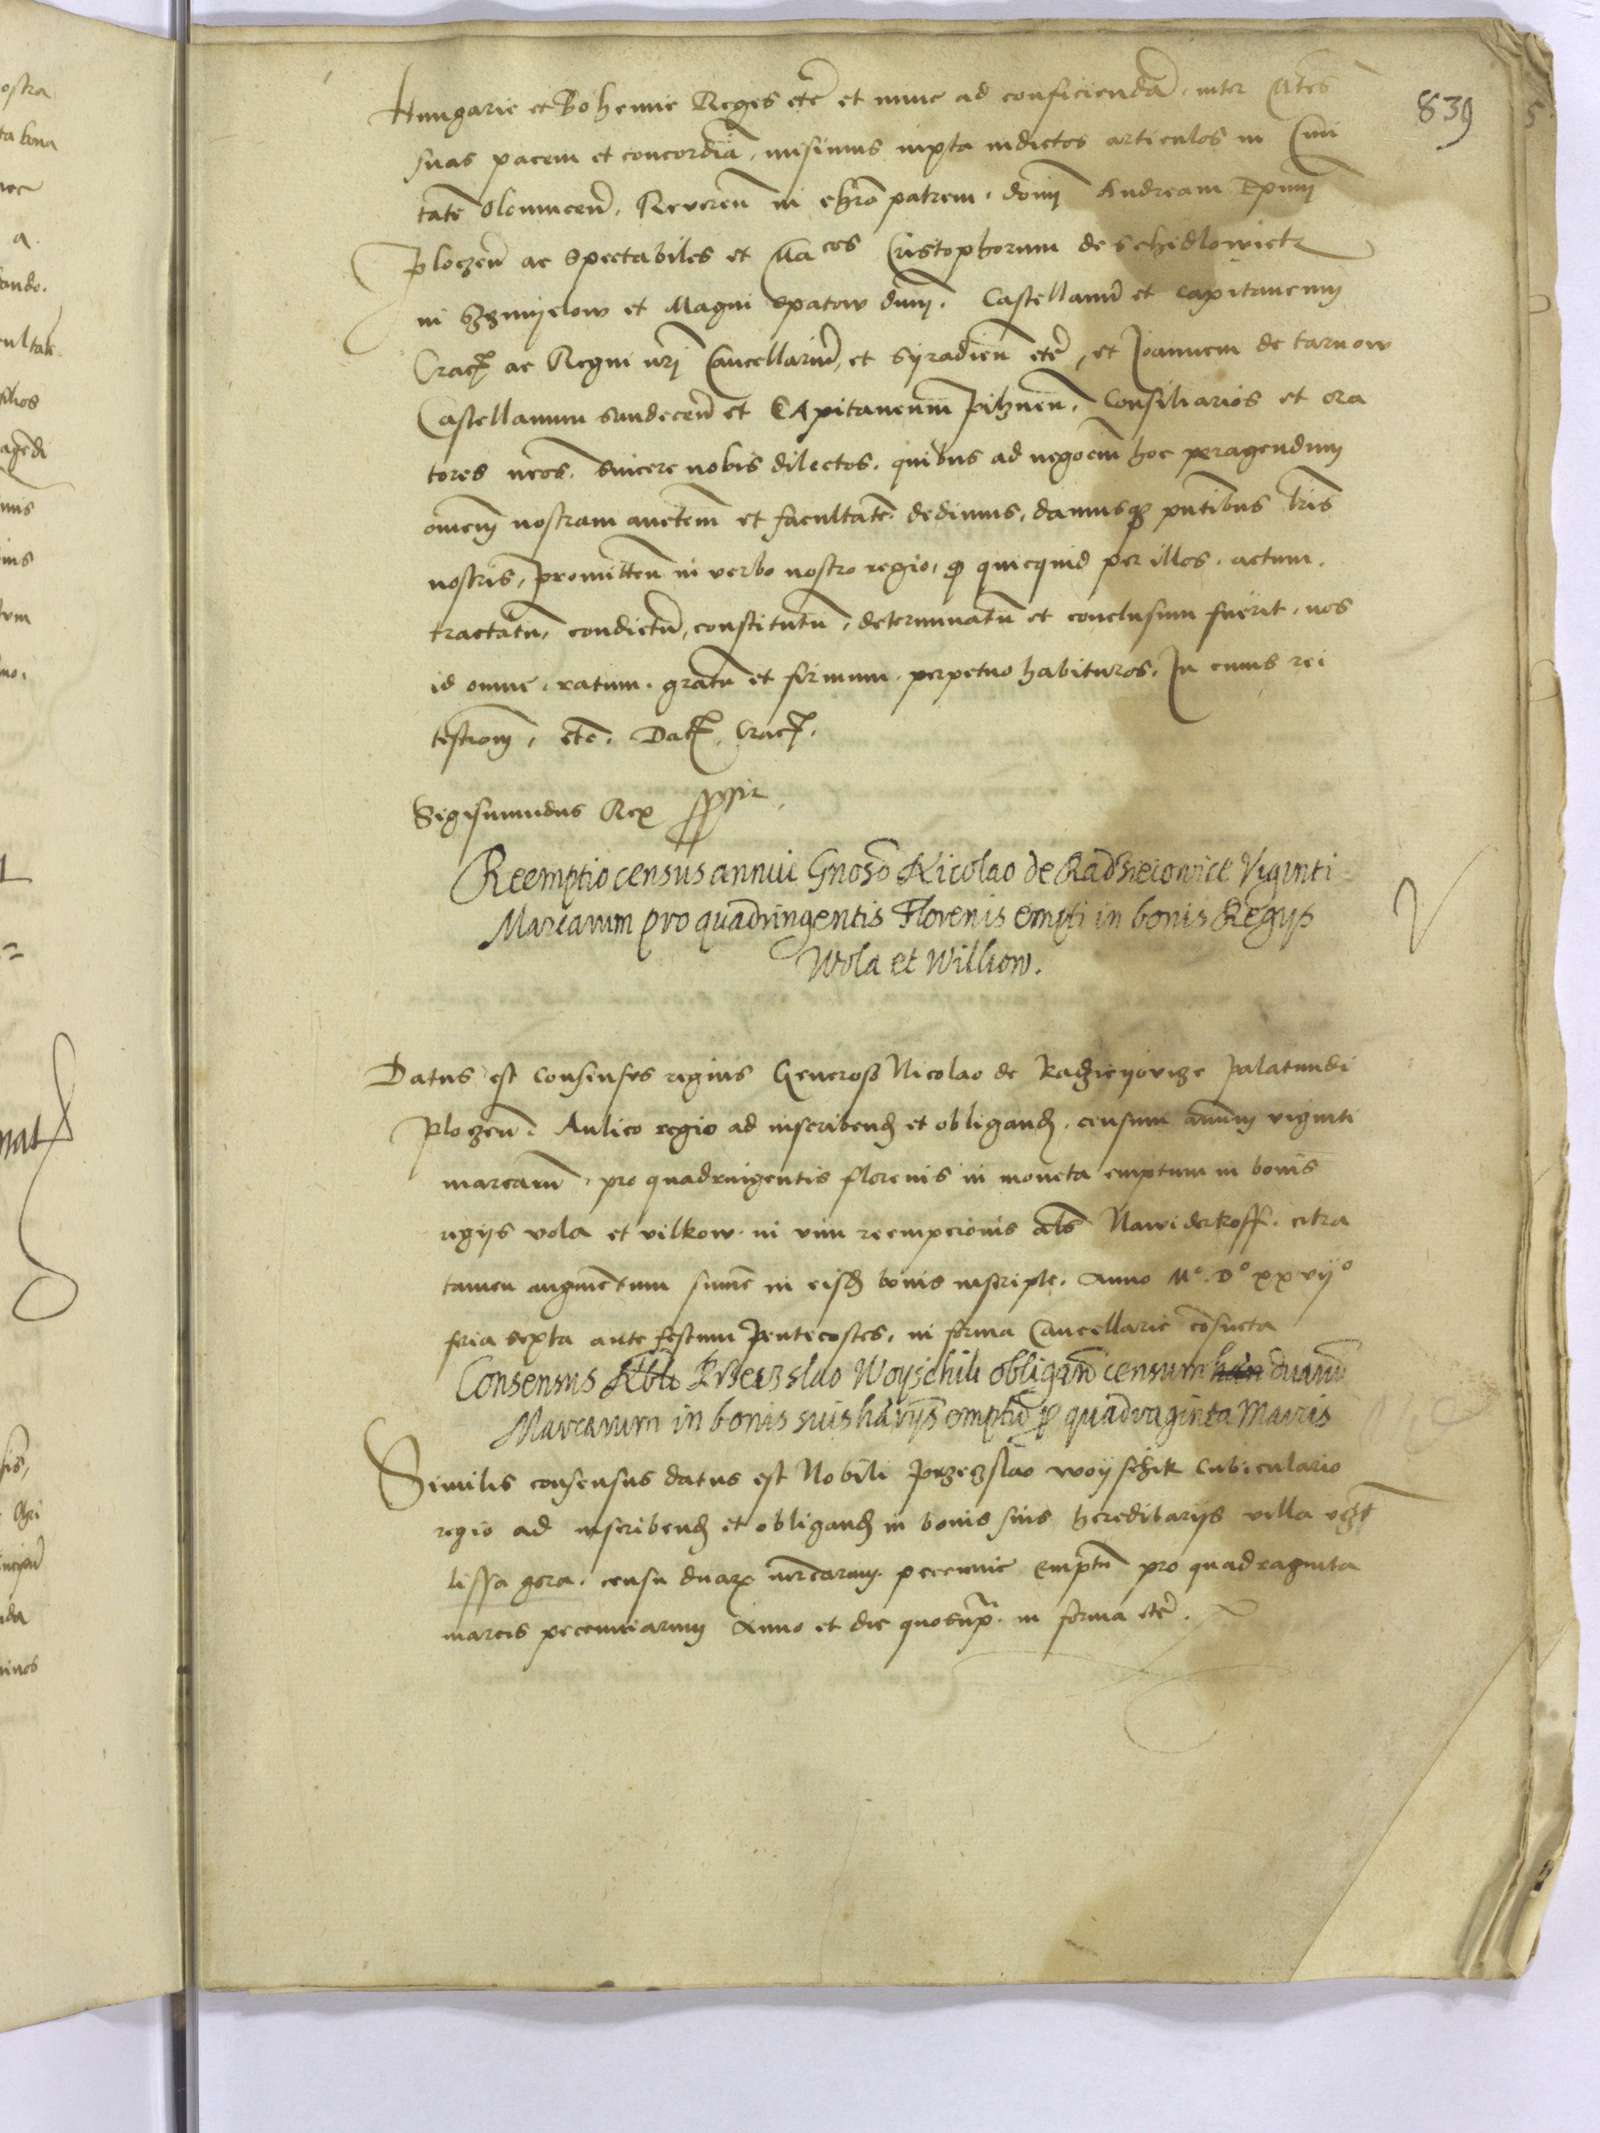 839
Hungarie et Bohemie Reges etc̃ et nunc ad conficiendã inter M̃tes
suas pacem et concordiã, misimus iuxta indictos articulos in Ciui
tatẽ Olomucen̄, Reueren̄ in chr̃o patrem, domĩ Andream Ep̃um
Ploczen̄ ac Spectabiles et Ma cos Cristophorum de Schidlowietz
in Szmyelow et Magni Opatow dn̄m, Castellanũ et Capitaneum
Crac̄ ac Regni nr̃i Cancellariũ, et Syradien̄ etc̃, et Joannem de tarnow
Castellanum Sandecen̄ et Capitaneum Pilznen̄, Consiliarios et ora
tores nr̃os, sincere nobis dilectos, quibus ad negocĩu hoc peragendum
om̃em nostram auctẽm et facultatẽ dedimus, damusq̃ pñtibus l̃ris
nostris, promitten̄ in verbo nostro regio, q̃ quicquid per illos actum,
tractatũ, condictũ, constitutũ, determinatũ et conclusum fuerit, nos
id omne, ratum, gratũ et firmum, perpetuo habituros. In cuius rei
testiom̃, etc̃. Dat̃. Crac̄.
Sigismundus Rex
Reemptio census annui Gnoso Nicolao de Radzieiowice Viginti
Marcarum pro quadringentis Florenis empti in bonis Regijs
Wola et Wilkow.
Datus est Consensus regius Generoso Nicolao de Radzieyowize Palatinidi
Ploczen̄. Aulico regio ad inscribend̄ et obligand̄, censum annũm viginti
marcarũ, pro quadringentis florenis in moneta emptum in bonis
regijs vola et vilkow in vim reempcionis al̃s Nawiderkoff, citra
tamen augmentum sum̃e in eisd̄ bonis inscripte. Anno Mº. Dº xxvijº
feria sexta ante festum Pentecostes, in forma Cancellarie cõsueta
Consensus Nbli Przeczslao Woyschik obligan̄ censum duarũ
Marcarum in bonis suis harijs emptũ p quadraginta Marcis
Similis consensus datus est Nobili Przeczslao woyschik Cubiculario
regio ad inscribend̄ et obligand̄ in bonis suis hereditarijs villa
lissa gora, censũ duarꝝ marcarum, pecunie emptũ pro quadraginta
marcis pecuniarum Anno et die quo sup̃ in forma etc̃.